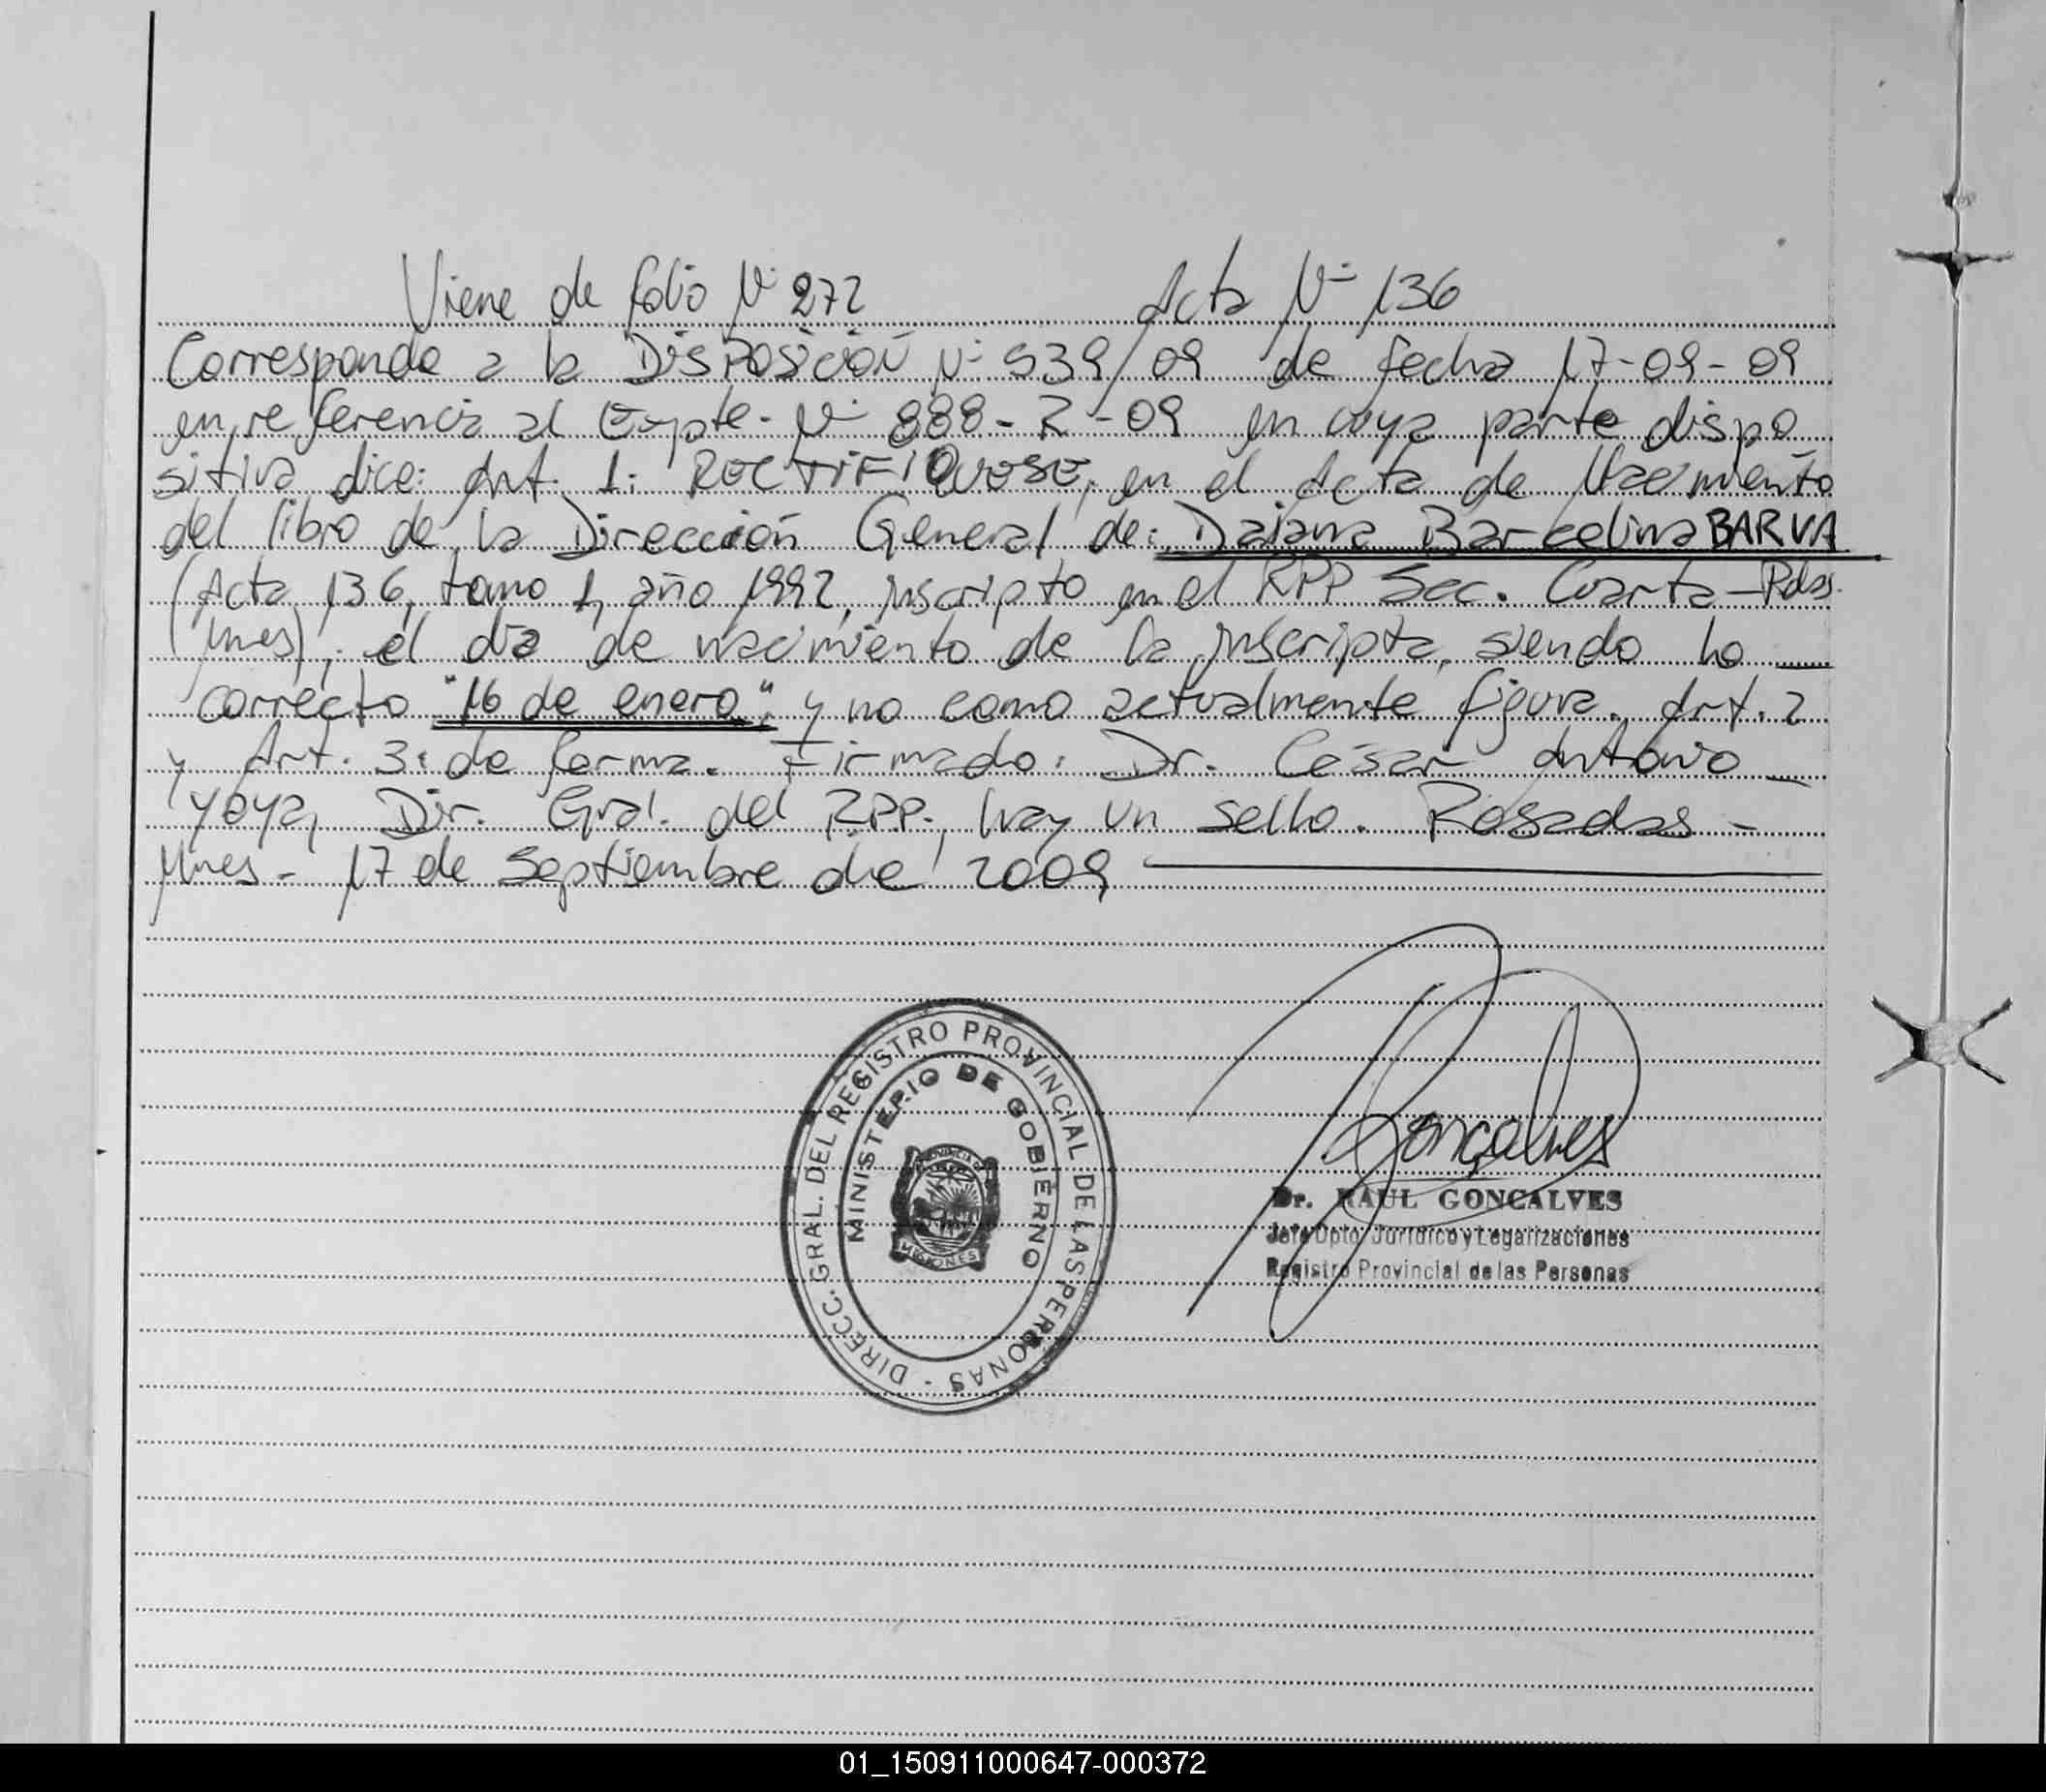 Viene de folio Nº 272 Acta Nº 136
Corresponde a la DISPOSICIÓN Nº 539/09 de fecha 17-09-09
en referencia al Expte. Nº 888-R-09 en cuya parte dispo
sitiva dice: Art. 1: RECTIFIQUESE, en el Acta de Nacimiento
del libro de la Dirección General de: Daiana Barcelina BARVA
(Acta 136, tomo 1, año 1992, inscripto en el RPP Sec. Cuarta-Pdas.
Mnes), el día de nacimiento de la inscripta, siendo lo
correcto "16 de enero"; y no como actualmente figura. Art. 2
y Art. 3: de forma. Firmado: Dr. César Antonio
Yaya, Dir. Gral. del RPP., hay un sello. Posadas -
Mnes - 17 de Septiembre de 2009
DIRECC. GRAL. DEL REGISTRO PROVINCIAL DE LAS PERSONAS -
MINISTERIO DE GOBIERNO
PROVINCIA DE
MISIONES
Gonçalves
Dr. RAUL GONCALVES
Jefe Dpto. Jurídico y Legalizaciones
Registro Provincial de las Personas
01_150911000647-000372